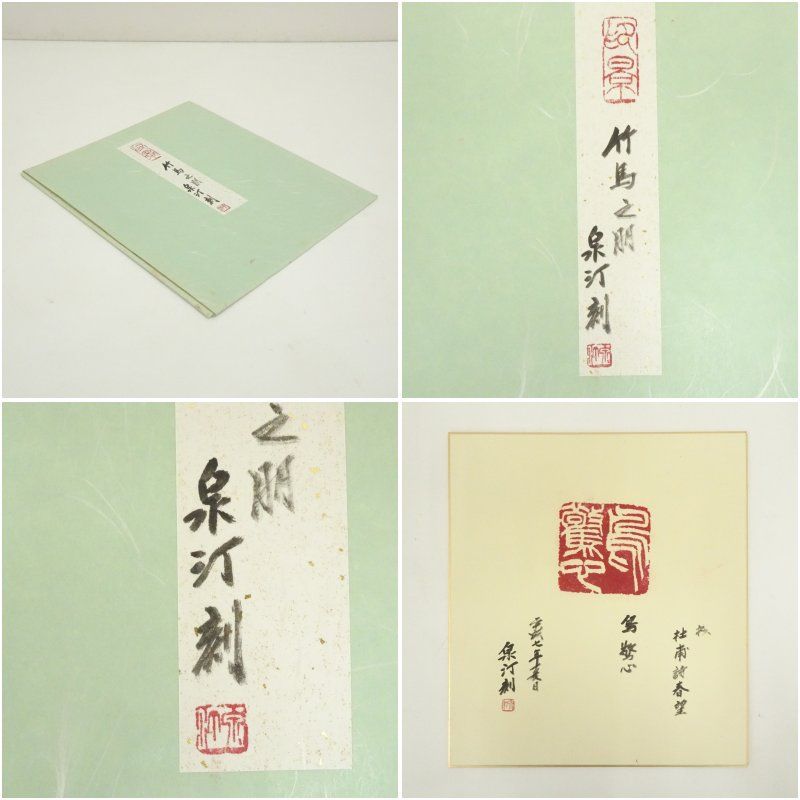 竹馬之朋
泉汀刻
竹馬之朋
泉汀刻
之朋
泉汀刻
鳥驚心
杜甫詩春望
鳥驚心
泉汀刻